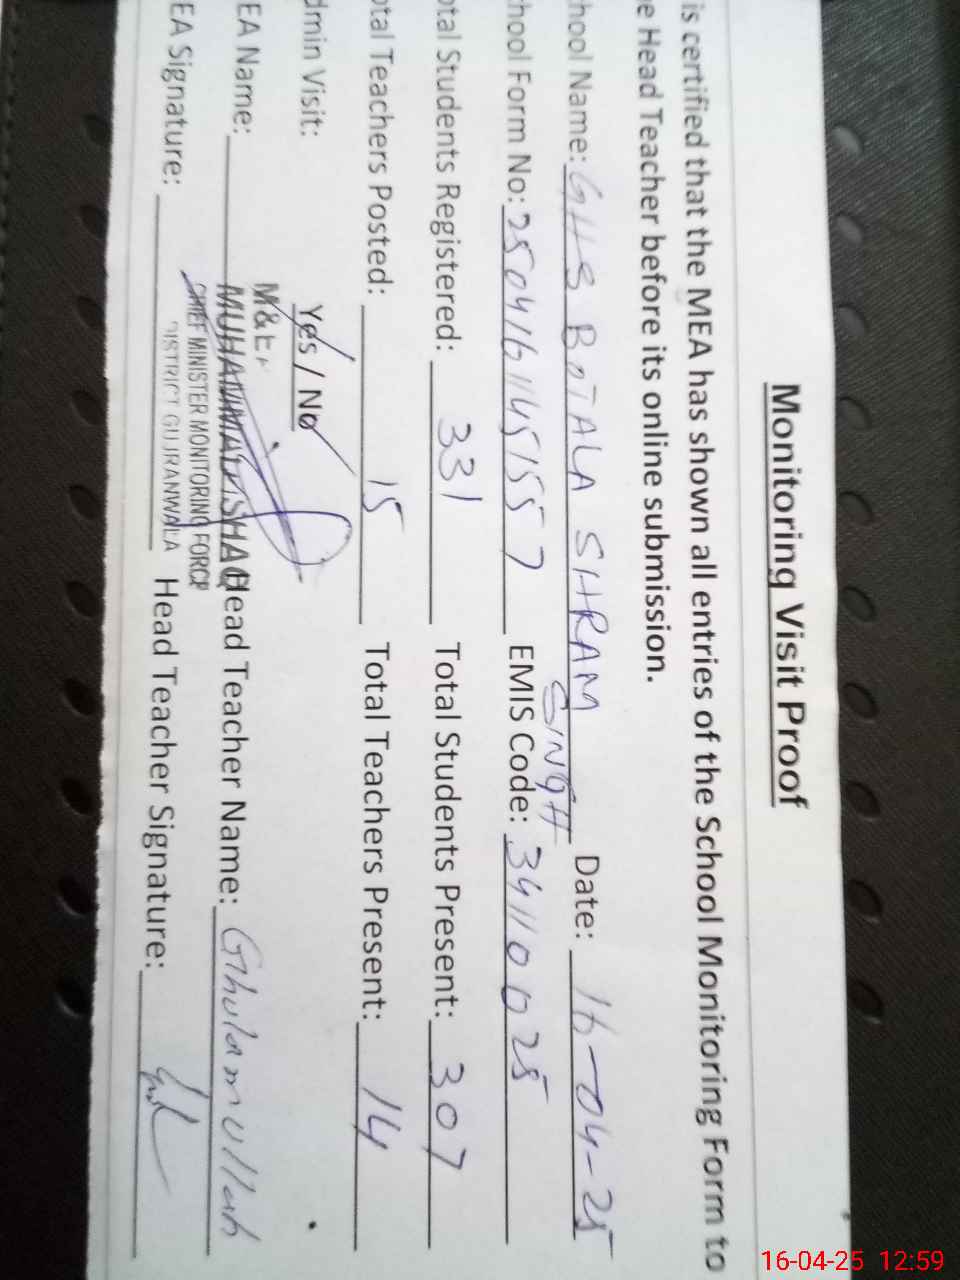 Monitoring Visit Proof
is certified that the MEA has shown all entries of the School Monitoring Form to
e Head Teacher before its online submission.
hool Name: GHS BOTALA SHRAM SINGH Date: 16-04-25
hool Form No: 2504161145157 EMIS Code: 34110025
otal Students Registered: 331 Total Students Present: 307
otal Teachers Posted: 15 Total Teachers Present: 14
dmin Visit: Yes / No
M&E
EA Name: MUHAMMAD ISHAQ Head Teacher Name: Ghulam ullah
CHIEF MINISTER MONITORING FORCE
DISTRICT GUJRANWALA
EA Signature: Head Teacher Signature:
16-04-25 12:59